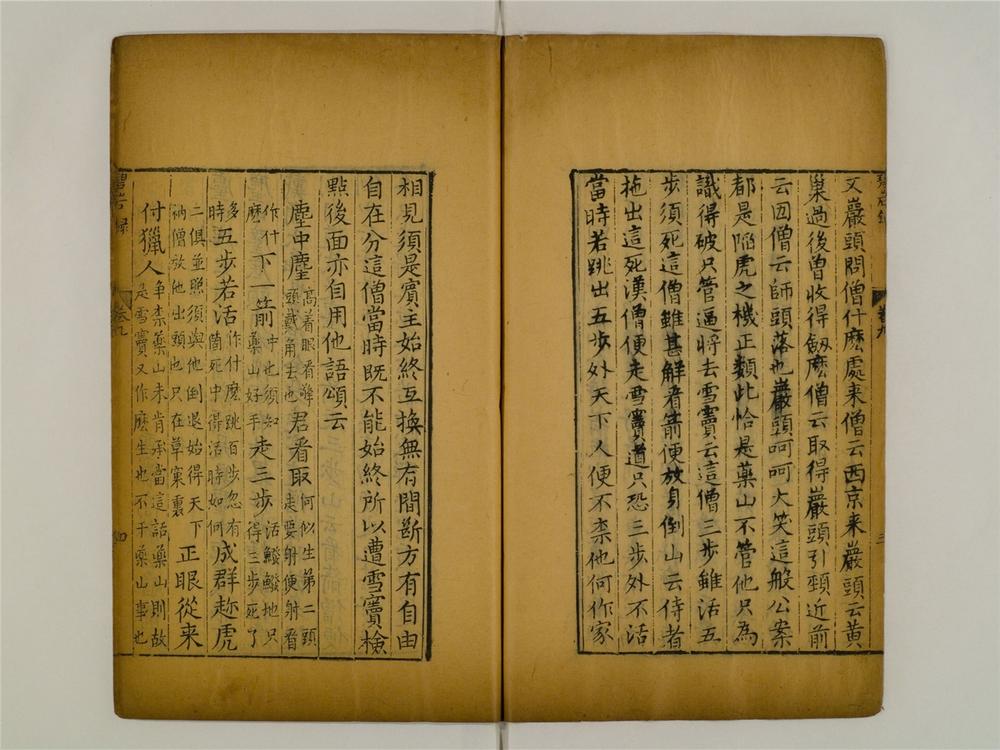 又巖頭問僧什麼處来僧云西京来巖頭云黄
巢過後曽收得劔麼僧云取得巖頭引頸近前
云㘞僧云師頭落也巖頭呵呵大笑這般公案
都是陷虎之機正類此恰是藥山不管他只為
識得破只管逼将去雪竇云這僧三步雖活五
步須死這僧雖甚解看箭便放身倒山云侍者
拖出這死漢僧便走雪竇道只恐三步外不活
當時若跳出五步外天下人便不柰他何作家
相見須是賓主始終互換無有間斷方有自由
自在分這僧當時既不能始終所以遭雪竇檢
點後面亦自用他語頌云
麈中麈髙着眼看擎頭戴角去也君看取何似生第二頭走要射便射看
作什麼下一箭中也須知藥山好手走三步活鱍鱍地只得三步死了
多時五步若活作什麼跳百步忽有箇死中得活時如何成群趂虎
二俱並照須與他倒退始得天下衲僧放他出頭也只在草窠裏正眼從来
付獵人争柰藥山未肯承當這話藥山則故是雪竇又作麼生也不干藥山事也
卷九
三
卷九
四